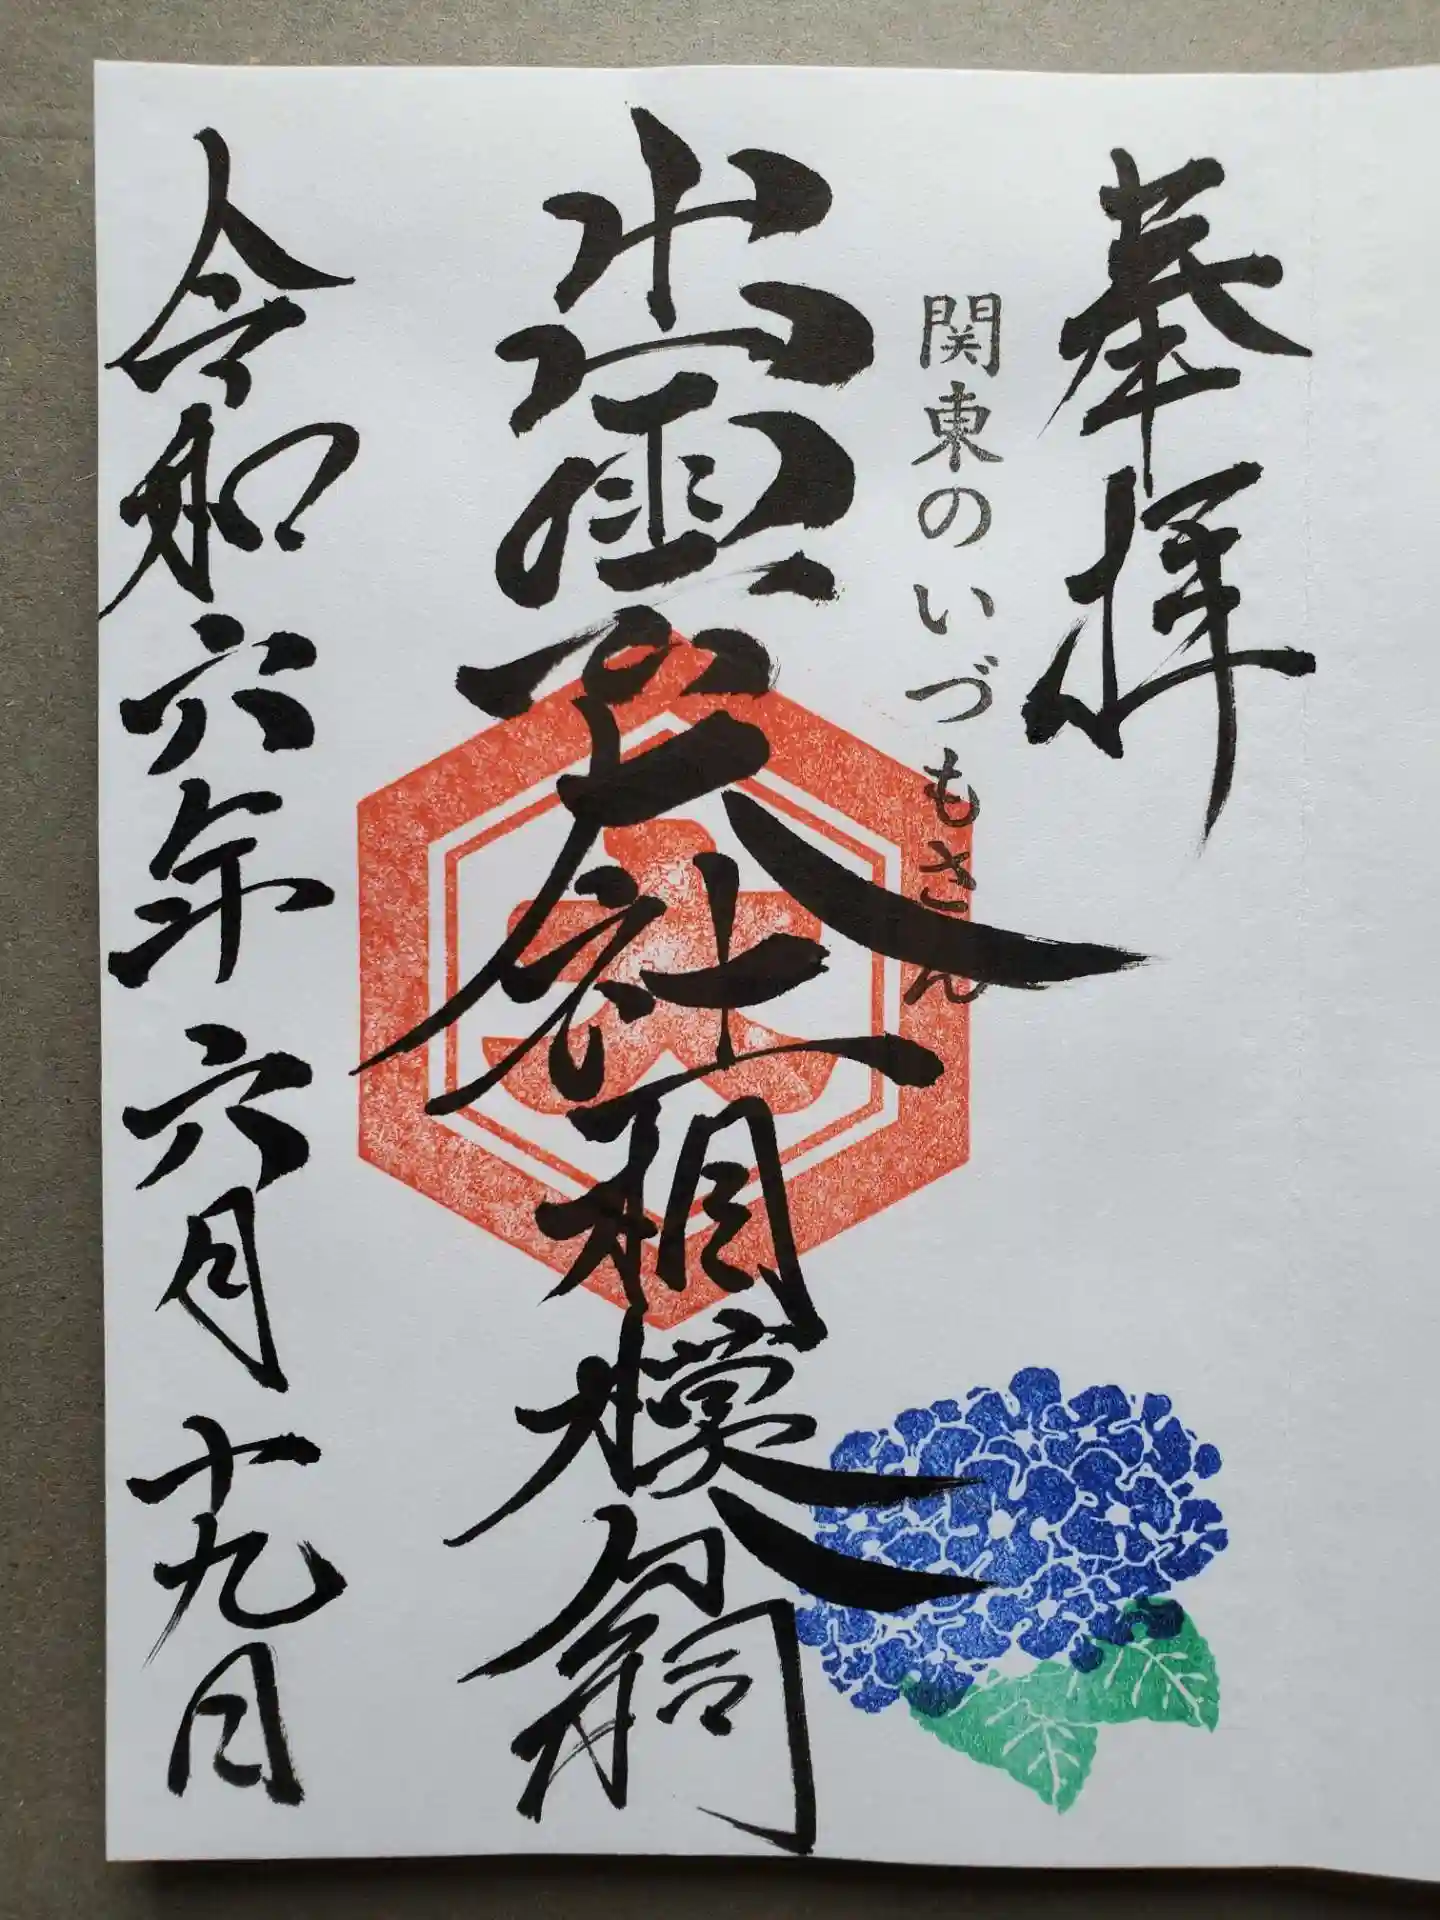 奉拝
関東のいづもさん
出雲大社相模分祠
大
令和六年六月十九日